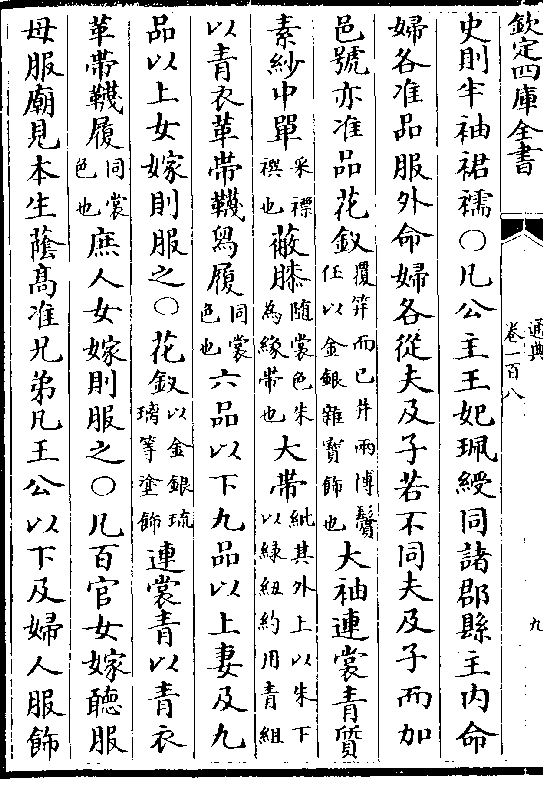 欽定四庫全書
通典
卷一百八
九
史則半袖裙襦〇凡公主王妃珮綬同諸郡縣主内命
婦各准品服外命婦各從夫及子若不同夫及子而加
邑號亦准品花釵覆笄而已并兩博鬢任以金銀雜寳飾也大袖連裳青質
素紗中單朱褾襈也蔽膝隨裳色朱為緣帶也大帶紕其外上以朱下以緑紐約用青組
以青衣革帶韈舄履同裳色也六品以下九品以上妻及九
品以上女嫁則服之〇花釵以金銀琉璃等塗飾連裳青以青衣
革帶韈履同裳色也庶人女嫁則服之〇凡百官女嫁聽服
母服廟見本生䕃髙准兄弟凡王公以下及婦人服飾